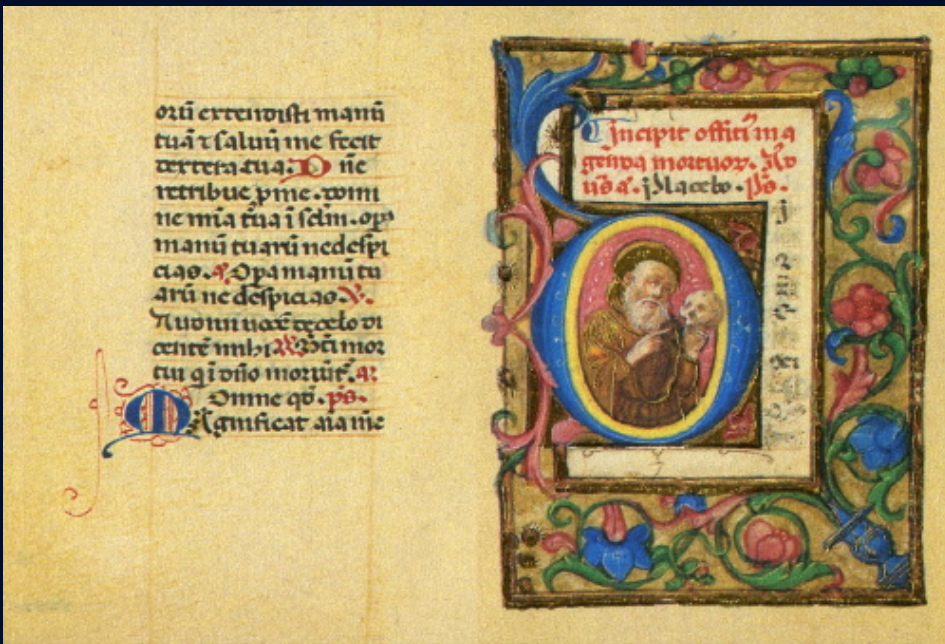 orū extendisti manū
tuā ⁊ saluū me fecit
dextera tua. D ñe
retribue p me. domi
ne mīa tua ī sclm. opa
manū tuarū ne despi
cias. a. Opa manū tu
arū ne despicias. V.
Audiui uocē de celo di
centē mihi Bti mor
tui qi ī dño moriūt. a.
Omne qd. ps.
Magnificat aīa me
Incipit offitiū in a
genda mortuor. An
a. Placebo. Ps.